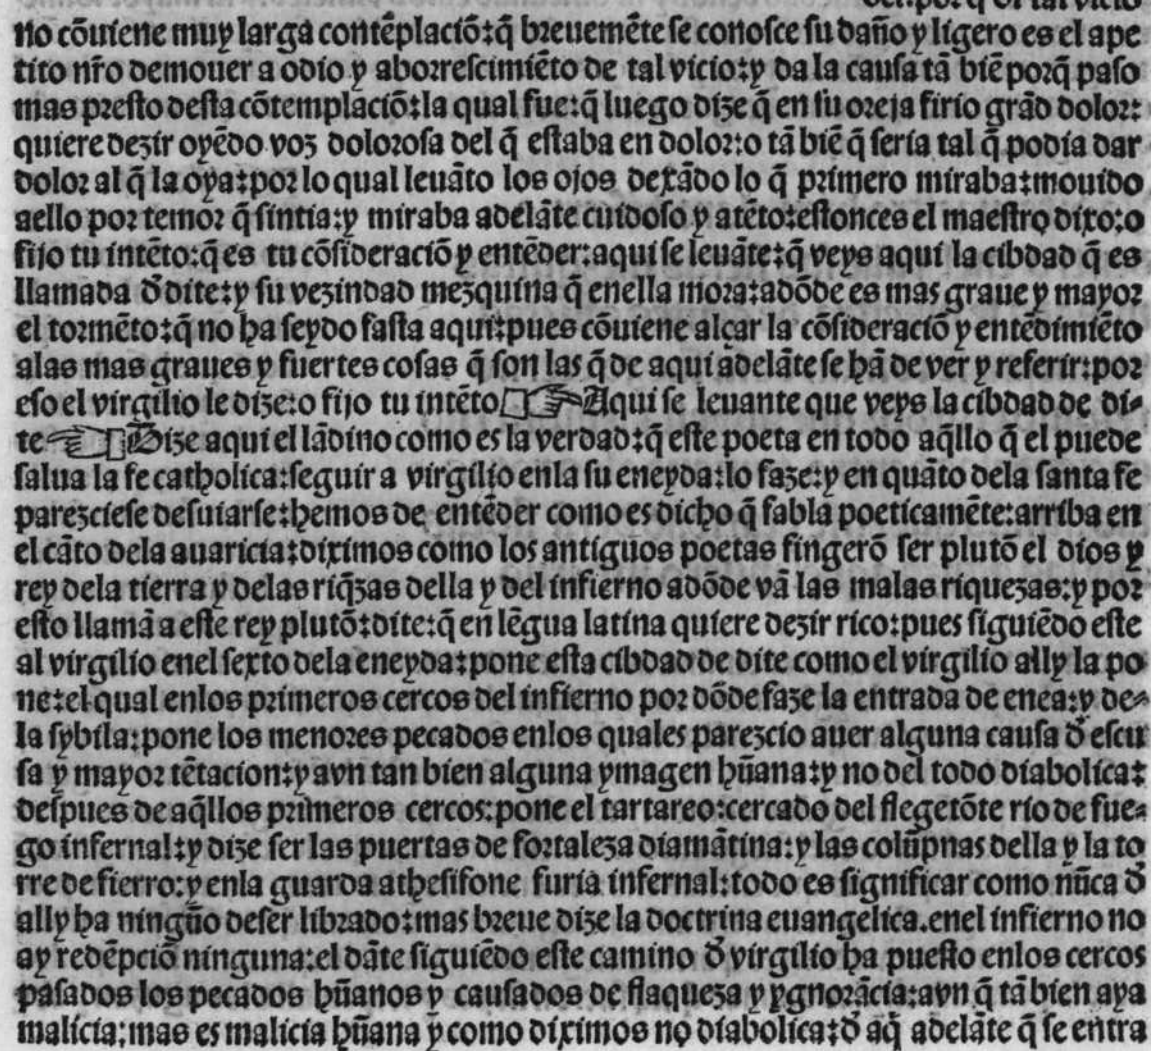 por q̃ di tal vicio
no cõuiene muy larga contẽplaciõ:q̃ breuemẽte se conosce su daño y ligero es el ape
tito nr̃o demouer a odio y aborrescimiẽto de tal vicio:y da la causa tã biẽ porq̃ paso
mas presto desta cõtemplaciõ:la qual fue:q̃ luego dize q̃ en su oreja firio grãd dolor:
quiere dezir oyẽdo voz dolorosa del q̃ estaba en dolor:o tã biẽ q̃ seria tal q̃ podia dar
dolor al q̃ la oya:por lo qual leuãto los ojos dexãdo lo q̃ primero miraba:mouido
aello por temor q̃ sintia:y miraba adelãte cuidoso y atẽto:estonces el maestro dixo:o
fijo tu intẽto:q̃ es tu cõsideraciõ y entẽder:aqui se leuãte:q̃ veys aqui la cibdad q̃ es
llamada d̃ dite:y su vezindad mezquina q̃ enella mora:adõde es mas graue y mayor
el tormẽto:q̃ no ha seydo fasta aqui:pues cõuiene alçar la cõsideraciõ y entẽdimiẽto
alas mas graues y fuertes cosas q̃ son las q̃ de aqui adelãte se hã de ver y referir:por
eso el virgilio le dize:o fijo tu intẽto ☞ Aqui se leuante que veys la cibdad de di-
te ☜ Dize aqui el lãdino como es la verdad:q̃ este poeta en todo aq̃llo q̃ el puede
salua la fe catholica:seguir a virgilio enla su eneyda:lo faze:y en quãto dela santa fe
parezciese desuiarse:hemos de entẽder como es dicho q̃ fabla poeticamẽte:arriba en
el cãto dela auaricia:diximos como los antiguos poetas fingerõ ser plutõ el dios y
rey dela tierra y delas riq̃zas della y del infierno adõde vã las malas riquezas:y por
esto llamã a este rey plutõ:dite:q̃ en lẽgua latina quiere dezir rico:pues siguiẽdo este
al virgilio enel sexto dela eneyda:pone esta cibdad de dite como el virgilio ally la po
ne:el qual enlos primeros cercos del infierno por dõde faze la entrada de enea:y de-
la sybila:pone los menores pecados enlos quales parezcio auer alguna causa d̃ escu
sa y mayor tẽtacion:y avn tan bien alguna ymagen hũana:y no del todo diabolica:
despues de aq̃llos primeros cercos:pone el tartareo:cercado del flegetõte rio de fue-
go infernal:y dize ser las puertas de fortaleza diamãtina:y las colũpnas della y la to
rre de fierro:y enla guarda athesifone furia infernal:todo es significar como nũca d̃
ally ha ningũo deser librado:mas breue dize la doctrina euangelica.enel infierno no
ay redẽpciõ ninguna:el dãte siguiẽdo este camino d̃ virgilio ha puesto enlos cercos
pasados los pecados hũanos y causados de flaqueza y ygnorãcia:avn q̃ tã bien aya
malicia:mas es malicia hũana y como diximos no diabolica:d̃ aq̃ adelãte q̃ se entra